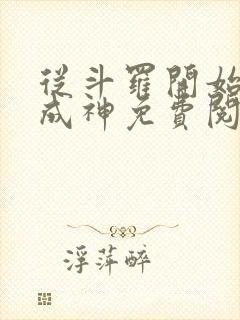 從斗羅開始
成神免費閱
浮萍醉